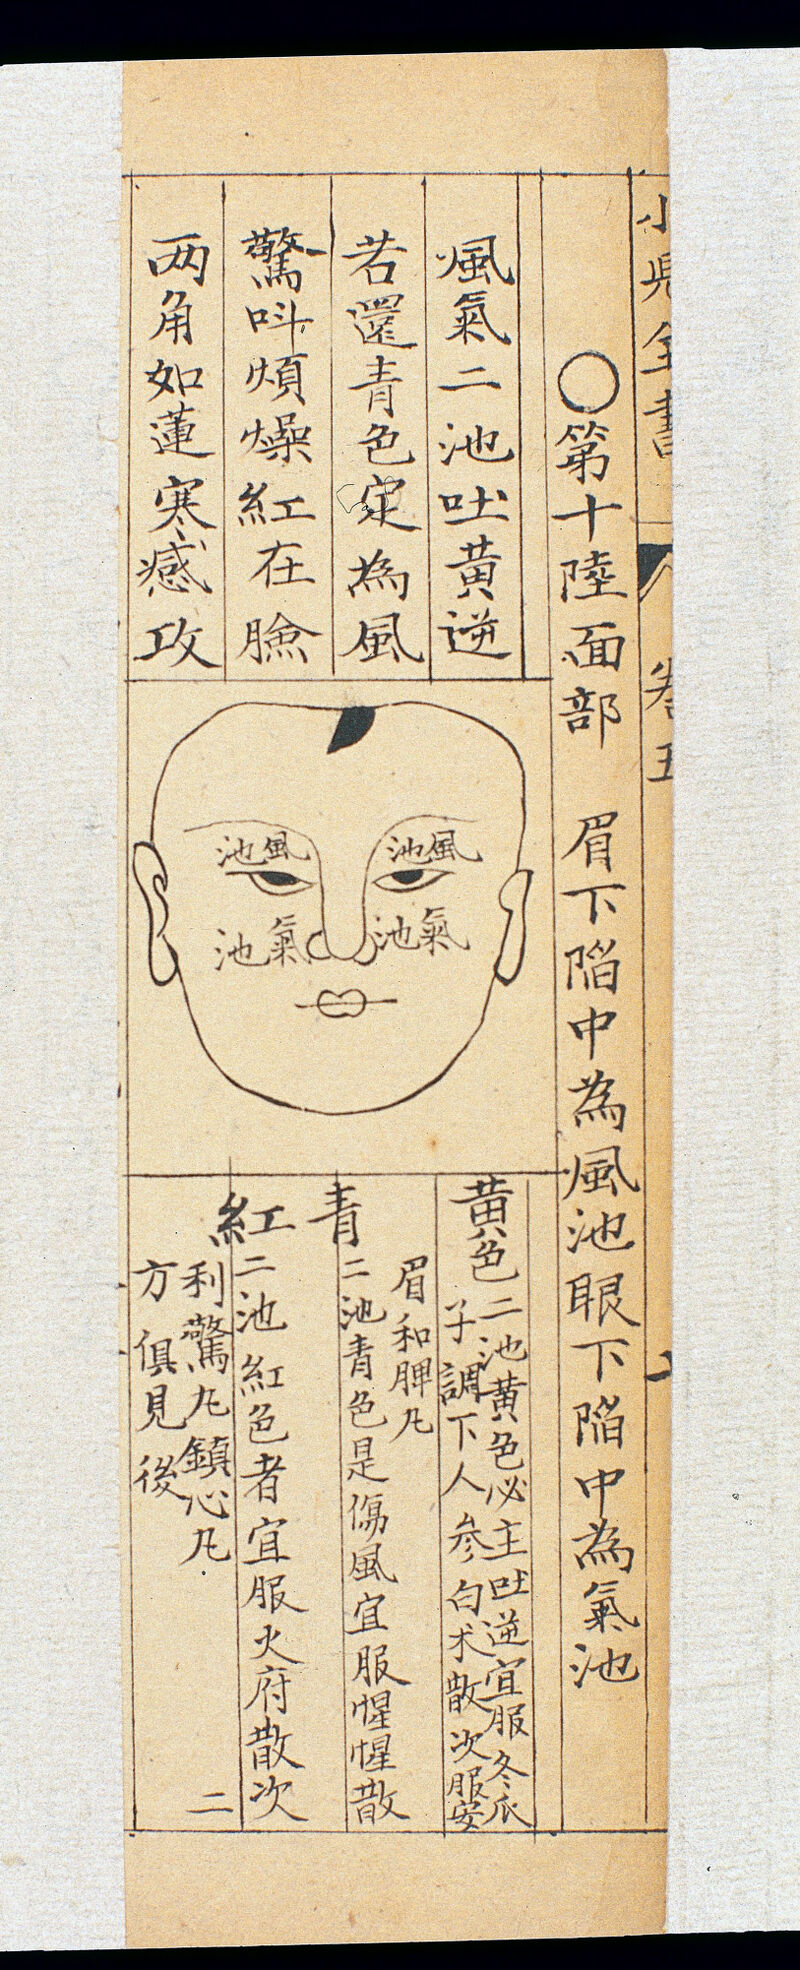 小兒全書 卷五
○第十陸面部 眉下陷中為風池眼下陷中為氣池
風氣二池吐黄逆
若還青色定為風
驚呌煩燥紅在臉
两角如蓮寒感攻
風池
風池
氣池
氣池
黄色
二池黄色必主吐逆宜服冬瓜
子調下人参白术散次服安
眉和脾凡
青
二池青色是傷風宜服惺惺散
紅
二池紅色者宜服火府散次
利驚凡鎮心凡
方俱見後
二